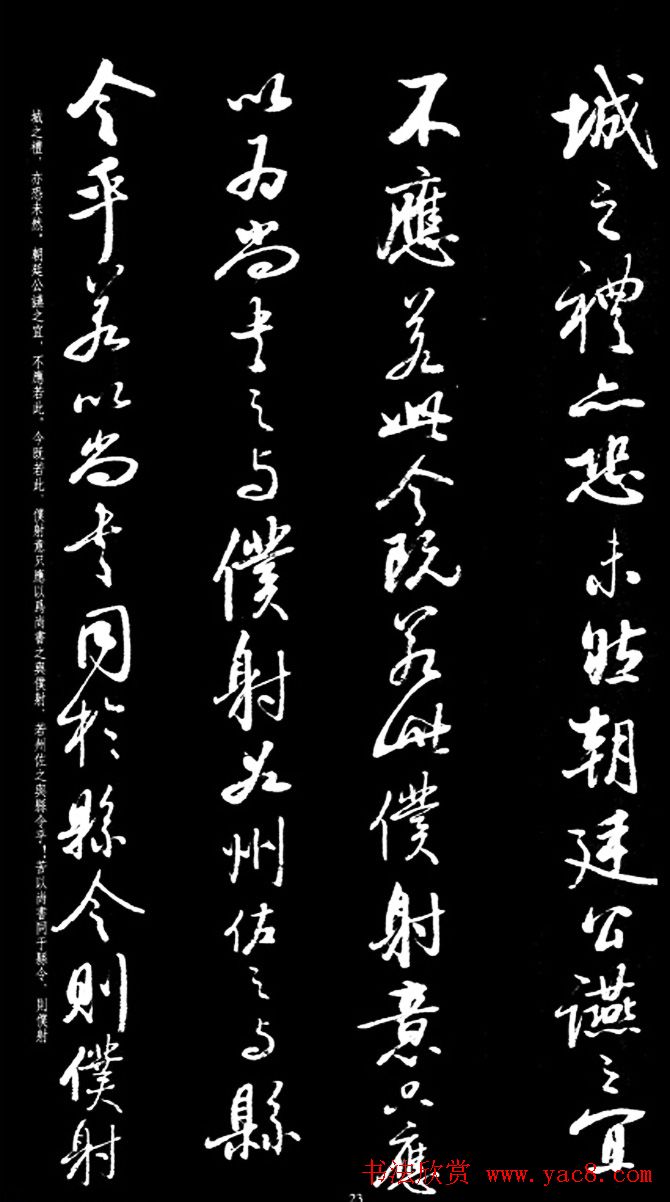 城之禮亦恐未然朝廷公讌之宜
不應若此今既若此僕射意只應
以為尚書之與僕射如州佐之與縣
令乎若以尚書同於縣令則僕射
城之禮，亦恐未然。朝廷公讌之宜，不應若此。今既若此，僕射意只應以爲尚書之與僕射，若州佐之與縣令乎！若以尚書同于縣令，則僕射
23
书法欣赏 www.yac8.com